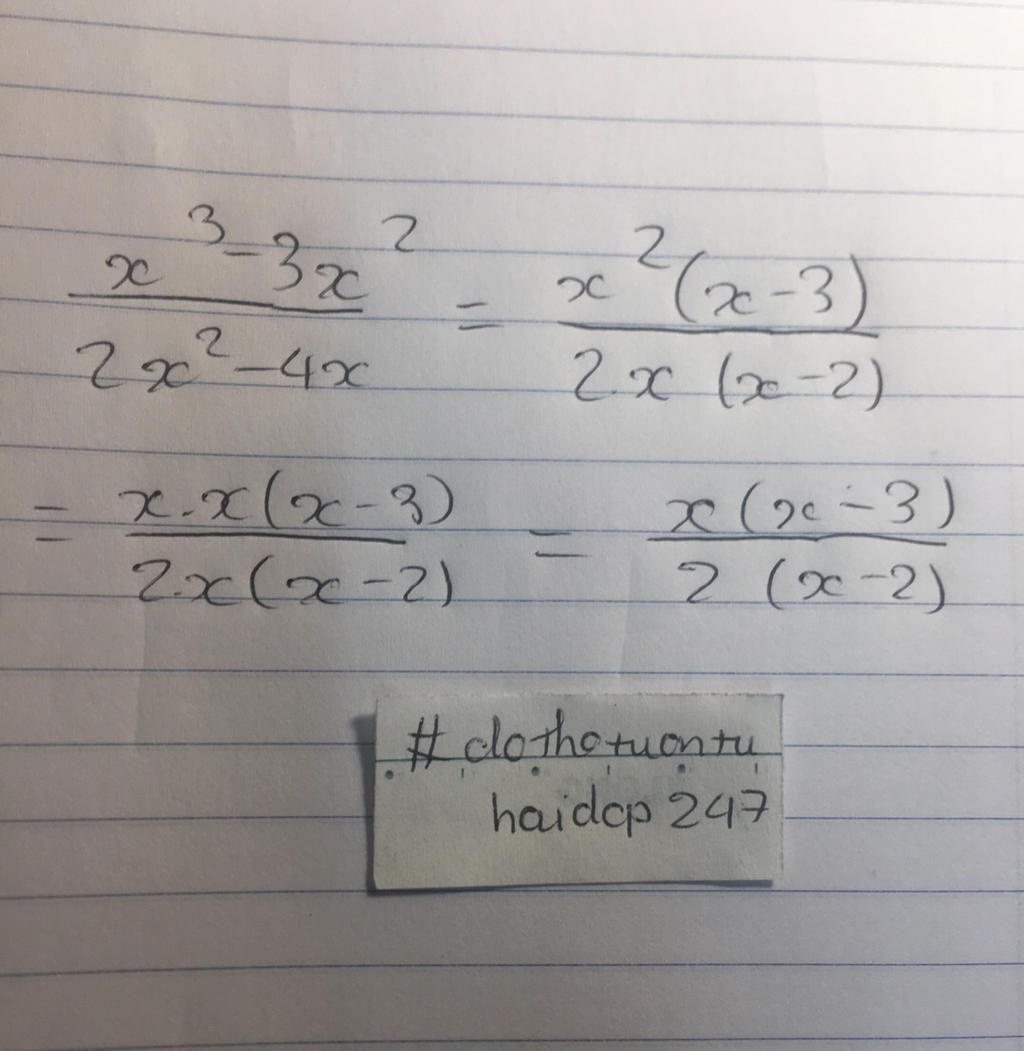 \frac{x^3-3x^2}{2x^2-4x} = \frac{x^2(x-3)}{2x(x-2)}
= \frac{x.x(x-3)}{2x(x-2)} = \frac{x(x-3)}{2(x-2)}
# dothotuontu
haidcp 247